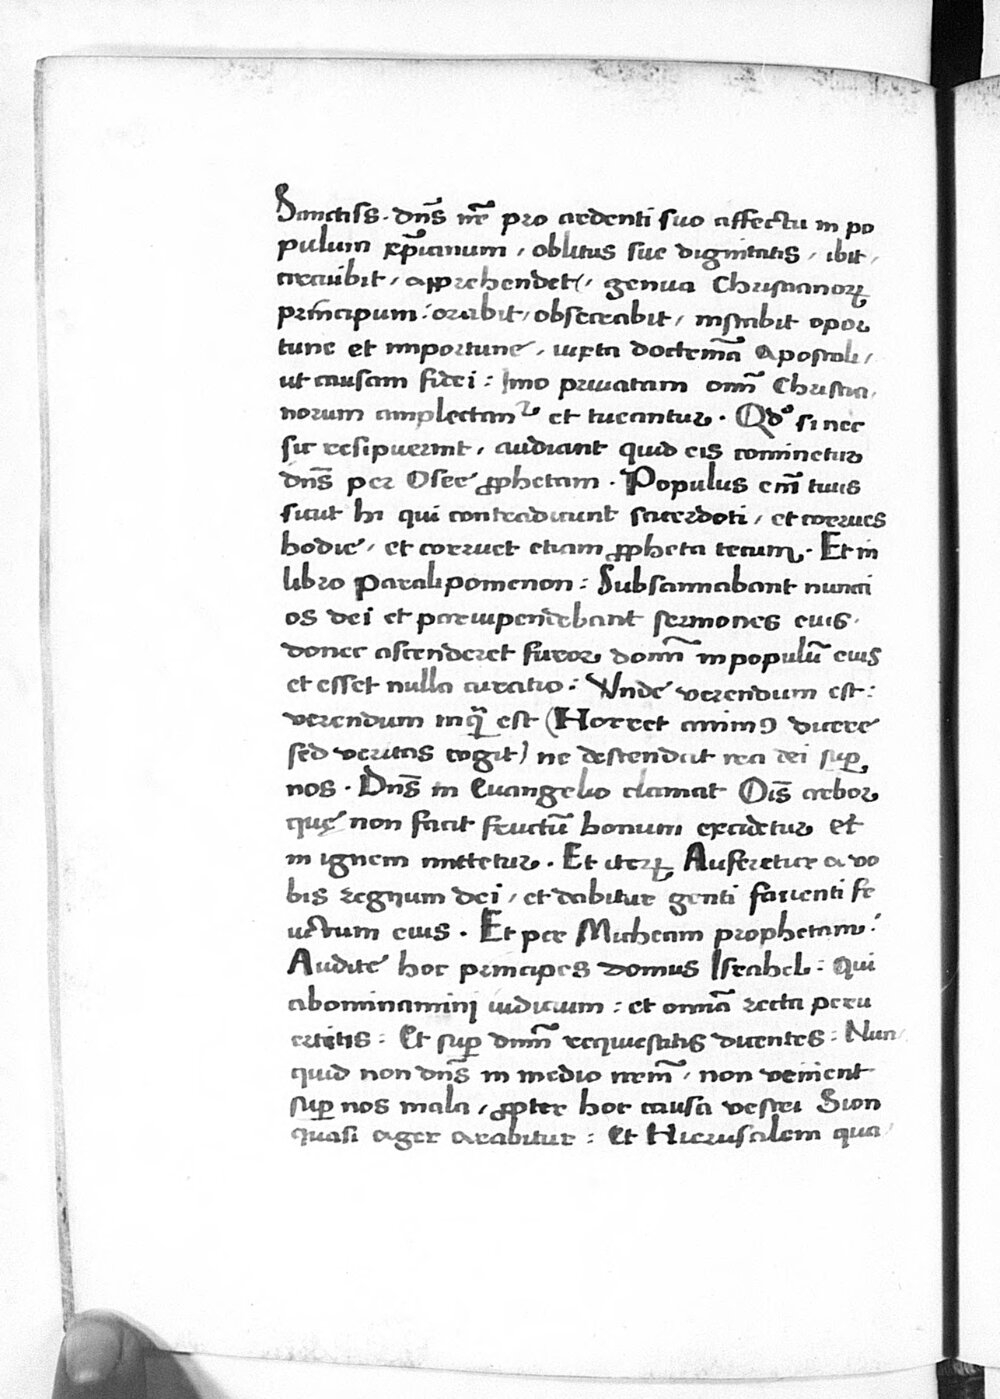 Sanctiss. dn̄s nr̄ pro ardenti suo affectu in po
pulum xp̄ianum, oblitus sue dignitatis, ibit,
circuibit, apprehendet, genua Christianoꝝ
principum: orabit, obsecrabit, instabit opor
tune et importune, iuxta doctrinā Apostoli,
ut causam fidei: Imo priuatam om̄ Christia,
norum amplectant᷑ et tueantur. Qd̊ si nec
sic resipuerint, audiant quid eis cominetur
dn̄s per Osee ꝓphetam. Populus em̄ tuus
sicut hi qui contradicunt sacerdoti, et corrues
hodie, et corruet etiam ꝓpheta tecum. Et in
libro Paralipomenon: Subsannabant nunci
os dei et paruipendebant sermones eius.
donec ascenderet furor domī in populū eius
et esset nulla curatio: Vnde verendum est:
verendum inq̄ est (Horret animꝰ dicere
sed veritas cogit) ne descendat ira dei suꝑ
nos. Dn̄s in Euangelio clamat Oīs arbor
quę non facit fructū bonum excidetur et
in ignem mittetur. Et iteꝝ Auferetur a vo
bis regnum dei, et dabitur genti facienti fr
uctum eius. Et per Micheam prophetam:
Audite hoc principes domus Israhel: Qui
abominamini iudicium: et omnia recta peru
ertitis: Et suꝑ dnm̄ requiescitis dicentes: Nun
quid non dn̄s in medio nr̄m, non venient
suꝑ nos mala, ꝓpter hoc causa vestri Sion
quasi ager arabitur: Et Hierusalem qua,